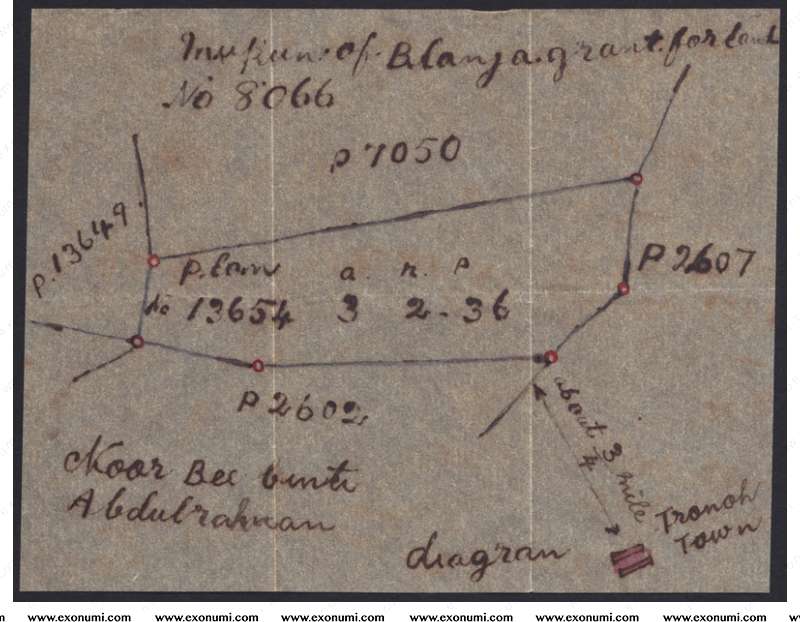 Mukim of Blanja grant for land
No 8066
P 7050
P. 13649.
P. lan a. r. p
No 13654 3 2 - 36
P 2607
P 2602
about 3/4 mile
Tronoh
Town
Noor Bee binti
Abdulrahman
diagran
www.exonumi.com www.exonumi.com www.exonumi.com www.exonumi.com www.exonumi.com www.exonumi.com